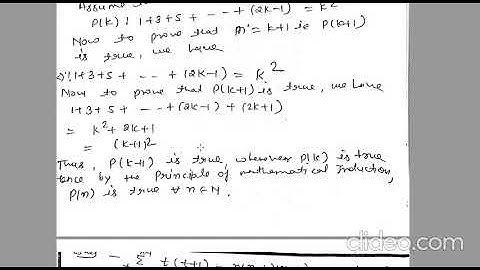 Assume th
P(k) : 1+3+5+ -- -- +(2k-1) = k²
Now to prove that n = k+1 ie P(k+1)
is true, we have
1+3+5+ -- -- +(2k-1) = k²
Now to prove that P(k+1) is true, we have
1+3+5+ -- -- +(2k-1) + (2k+1)
= k²+2k+1
= (k+1)²
Thus, P(k+1) is true, whenever P(k) is true
Hence by the principle of mathematical Induction,
P(n) is true ∀ n∈N.
clideo.com